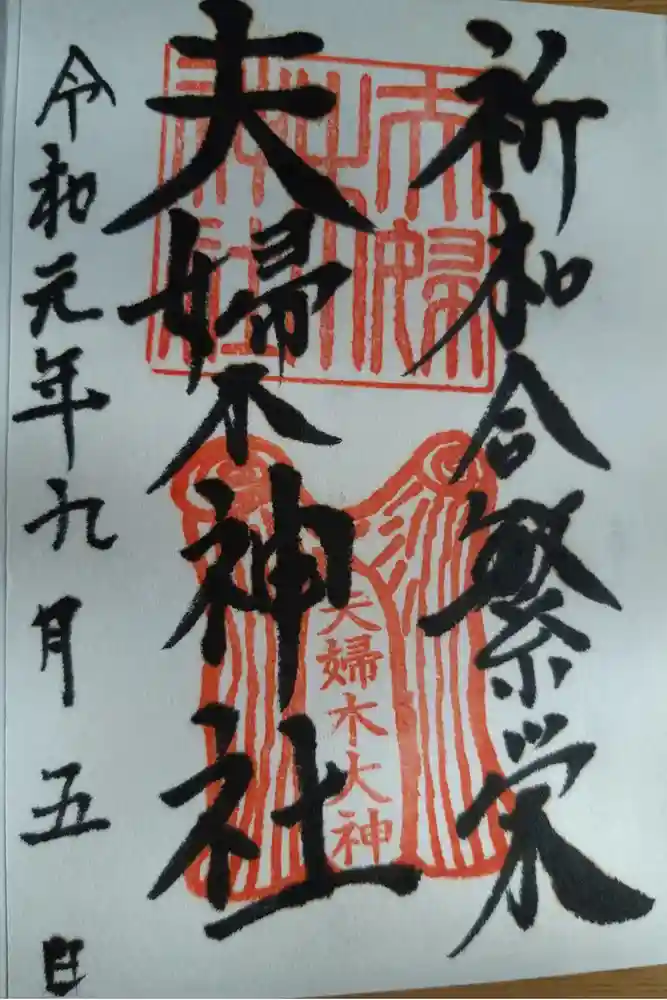 祈和合繁栄
夫婦木神社
夫婦木神社
夫婦木大神
令和元年九月五日